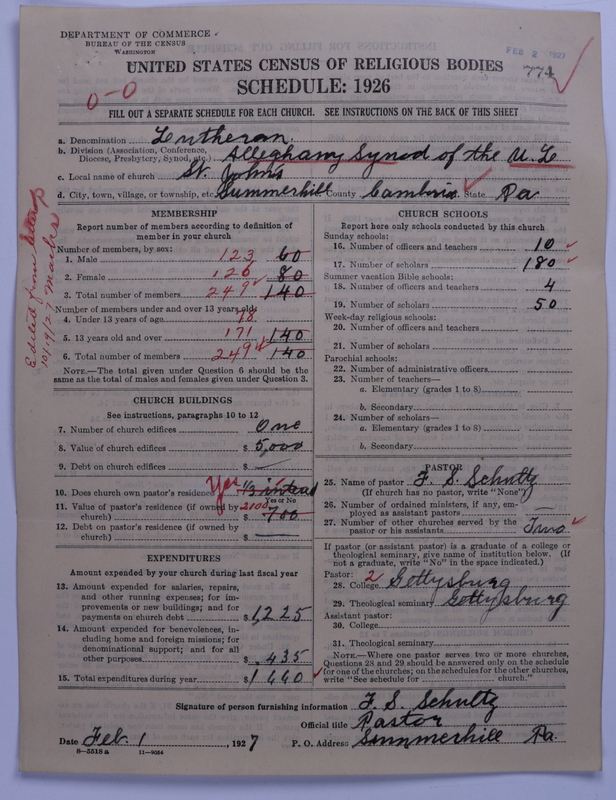 DEPARTMENT OF COMMERCE
BUREAU OF THE CENSUS
WASHINGTON
FEB 2 1927
774
UNITED STATES CENSUS OF RELIGIOUS BODIES
SCHEDULE: 1926
0-0
FILL OUT A SEPARATE SCHEDULE FOR EACH CHURCH. SEE INSTRUCTIONS ON THE BACK OF THIS SHEET
a. Denomination Lutheran
b. Division (Association, Conference,
Diocese, Presbytery, Synod, etc.) Alleghany Synod of the U. L
c. Local name of church St. Johns
d. City, town, village, or township, etc. Summerhill County Cambria State Pa
Edited from
10/9/27 Marks
MEMBERSHIP
Report number of members according to definition of
member in your church
Number of members, by sex:
1. Male 123 60
2. Female 126 80
3. Total number of members 249 140
Number of members under and over 13 years old:
4. Under 13 years of age 78
5. 13 years old and over 171 140
6. Total number of members 249 140
NOTE.—The total given under Question 6 should be
same as the total of males and females given under Question 3.
CHURCH BUILDINGS
See instructions, paragraphs 10 to 12
7. Number of church edifices One
8. Value of church edifices $ 5,000
9. Debt on church edifices $ —
10. Does church own pastor's residence? Yes 1/3
Yes or No
11. Value of pastor's residence (if owned by
church) 2100 $ 700
12. Debt on pastor's residence (if owned by
church) $ —
EXPENDITURES
Amount expended by your church during last fiscal year
13. Amount expended for salaries, repairs,
and other running expenses; for im-
provements or new buildings; and for
payments on church debt $ 1,225
14. Amount expended for benevolences, in-
cluding home and foreign missions; for
denominational support; and for all
other purposes $ 435
15. Total expenditures during year $ 1660
CHURCH SCHOOLS
Report here only schools conducted by this church
Sunday schools:
16. Number of officers and teachers 10
17. Number of scholars 180
Summer vacation Bible schools:
18. Number of officers and teachers 4
19. Number of scholars 50
Week-day religious schools:
20. Number of officers and teachers
21. Number of scholars
Parochial schools:
22. Number of administrative officers
23. Number of teachers—
a. Elementary (grades 1 to 8)
b. Secondary
24. Number of scholars—
a. Elementary (grades 1 to 8)
b. Secondary
PASTOR
25. Name of pastor F. S. Schultz
(If church has no pastor, write "None")
26. Number of ordained ministers, if any, em-
ployed as assistant pastors
27. Number of other churches served by the
pastor or his assistants Two
If pastor (or assistant pastor) is a graduate of a college or
theological seminary, give name of institution below. (If
not a graduate, write "No" in the space indicated.)
Pastor: 2
28. College Gettysburg
29. Theological seminary Gettysburg
Assistant pastor:
30. College
31. Theological seminary
NOTE.—Where one pastor serves two or more churches,
Questions 28 and 29 should be answered only on the schedule
for one of the churches; on the schedules for the other churches,
write "See schedule for church."
Signature of person furnishing information F. S. Schultz
Official title Pastor
Date Feb. 1, 1927 P. O. Address Summerhill Pa.
8—5518 a 11—9054